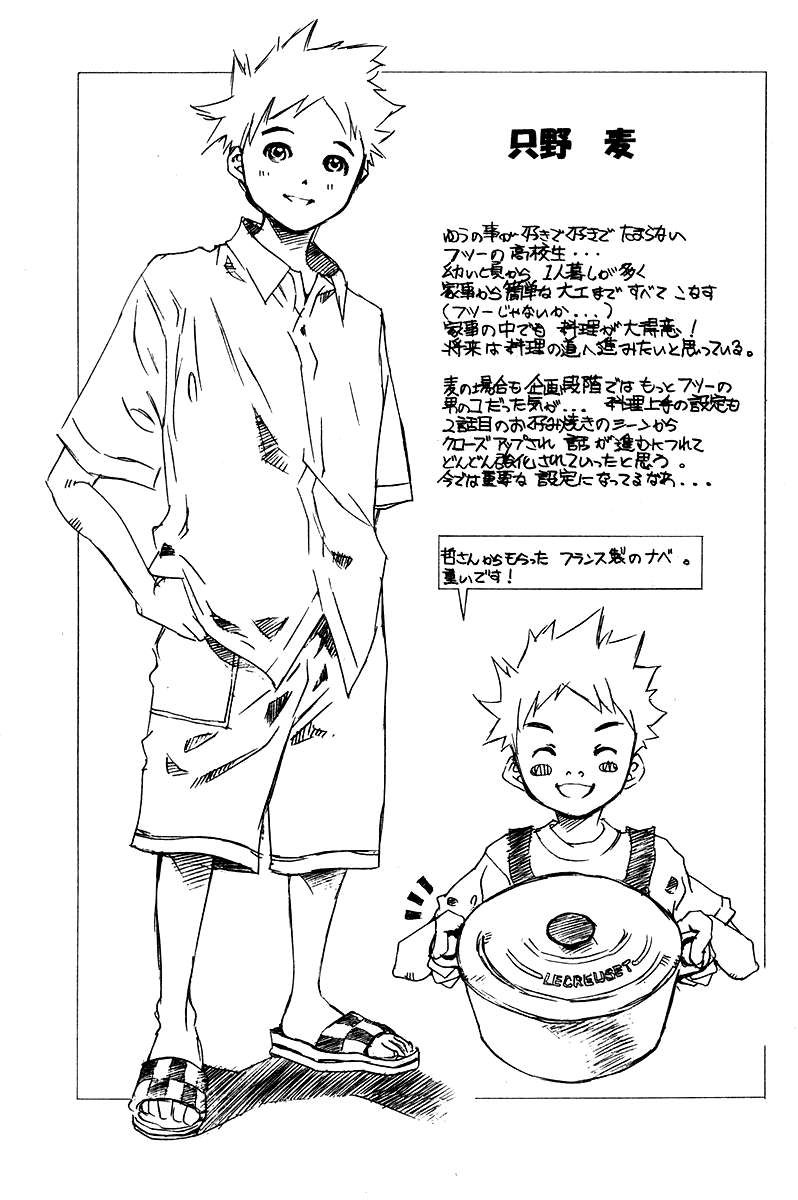 只野 麦
ゆうの事が好きで好きでたまらない
フツーの高校生・・・
幼い頃から 1人暮しが多く
家事から簡単な大工まで すべて こなす
(フツーじゃないか・・・)
家事の中でも 料理が大得意!
将来は料理の道へ進みたいと思っている。
麦の場合も 企画段階では もっとフツーの
男のコだった気が・・・ 料理上手の設定も
2話目のお好み焼きのシーンから
クローズアップされ 話が進むにつれて
どんどん強化されていったと思う。
今では重要な 設定になってるなぁ・・・
哲さんからもらった フランス製のナベ。
重いです!
LECREUSET